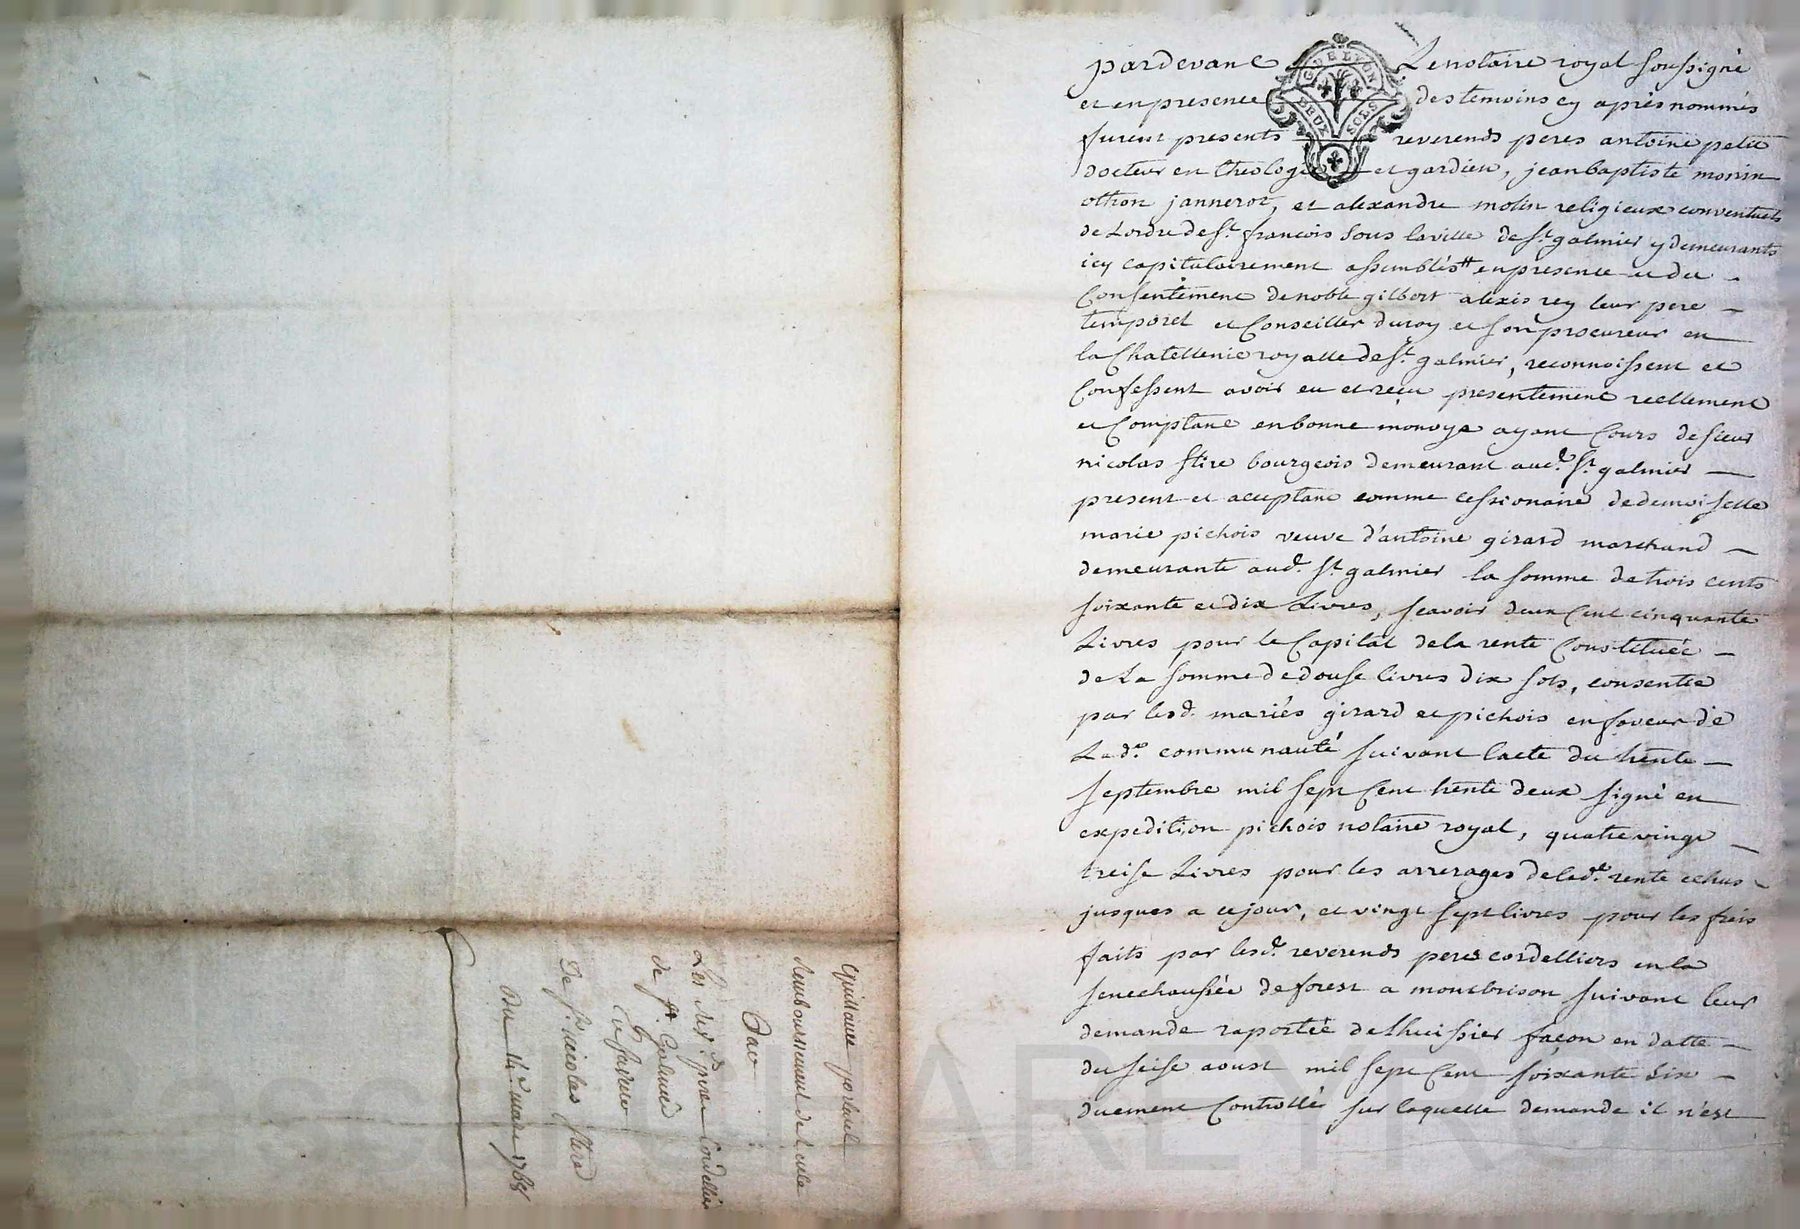 pardevant Le notaire royal soussigné
et en presence des temoins cy après nommés
furent presents reverends peres antoine petit
docteur en theologie et gardien, jean baptiste morin
othon jannerot, et alexandre molin religieux conventuels
de Lordre de st. françois sous la ville de st. galmier y demeurants
icy capitulairement assemblés en presence et du
Consentement de noble gilbert alexis rey leur pere
temporel et Conseiller du roy et son procureur en
la Chatellenie royalle de st. galmier, reconnoissent et
Confessent avoir eu et reçu presentement reellement
et Comptant en bonne monoye ayant Cours de sieur
nicolas flire bourgeois demeurant aud. st. galmier
present et acceptant comme cessionaire de demoiselle
marie pichois veuve d'antoine girard marchand
demeurante aud. st. galmier la somme de trois cents
soixante et dix Livres, scavoir deux Cent cinquante
Livres pour le Capital de la rente Constituée
de La somme de douse livres dix sols, consentie
par lesd. mariés girard et pichois en faveur de
Lade. communauté suivant lacte du trente
septembre mil sept Cent trente deux signé en
expedition pichois notaire royal, quatre vingt
treise Livres pour les arrerages de lade. rente echus
jusques a ce jour, et vingt sept livres pour les freis
faits par lesd. reverends peres cordelliers en la
senechaussée de forest a montbrison suivant leur
demande raportée de Lhuissier façon en datte
du seise aoust mil sept Cent soixante six
duement Controllé sur laquelle demande il n'est
G. DE LYON
DEUX SOLS
Quittance portant
remboursement de
Pour
Les Rds. peres Cordelliers
de st. Galmier
En faveur
De sr. nicolas flire
Du 14e. mars 1768
CHAREYRON